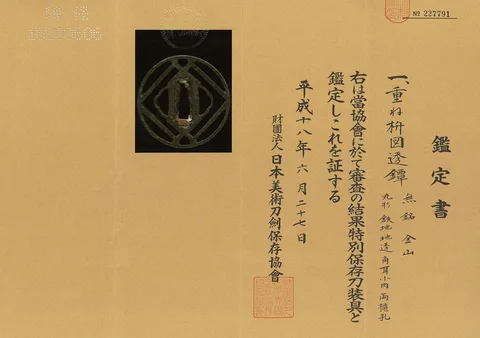 № 227791
鑑定書
一、重ね枡図透鐔 無銘 金山
丸形 鉄地 地透 角耳小肉 両櫃孔
右は當協會に於て審査の結果特別保存刀装具と
鑑定しこれを証する
平成十八年六月二十七日
財團法人 日本美術刀劍保存協會